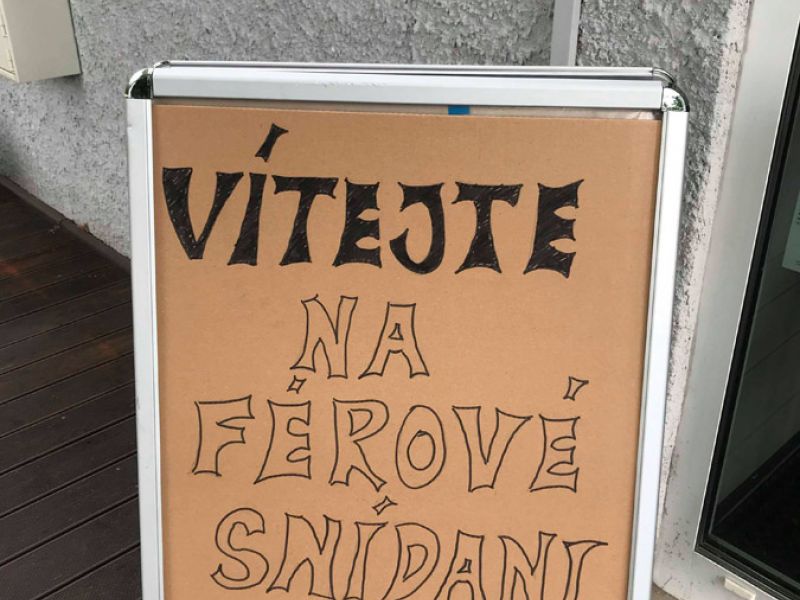 VÍTEJTE
NA
FÉROVÉ
SNÍDANI